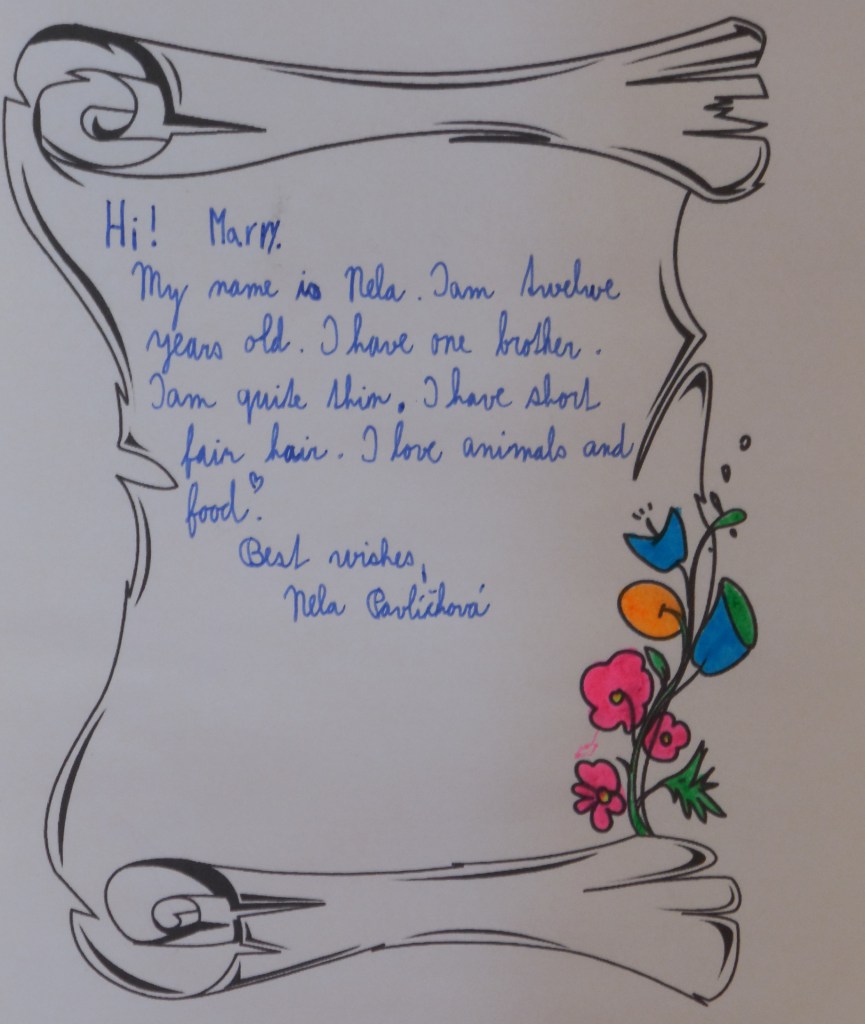 Hi! Marry.
My name is Nela. Iam twelwe
years old. I have one brother.
Iam quite thin. I have short
fair hair. I love animals and
food♡.
Best wishes,
Nela Pavlíčková